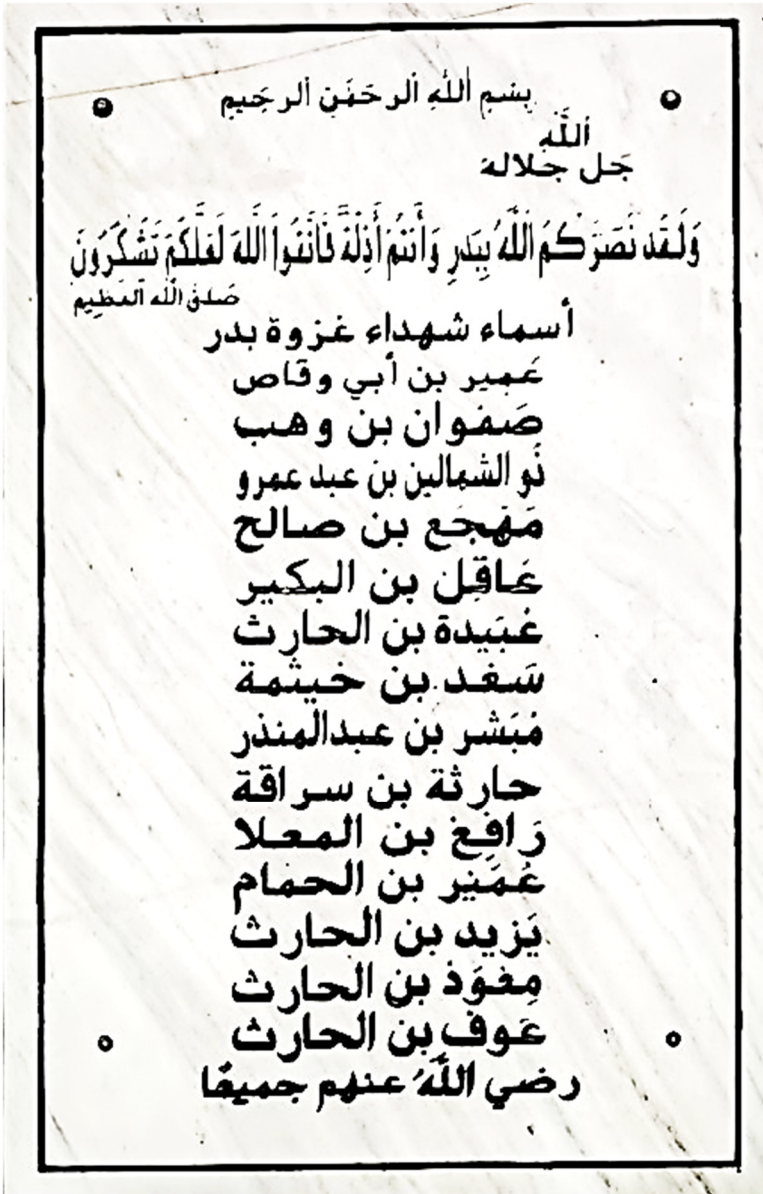 بِسْمِ اللهِ الرَحمَنِ الرَحِيمِ
اللَّهِ
جَل جَلاله
وَلَقَد نَصَرَكُمُ اللَّهُ بِبَدرٍ وَأَنتُم أَذِلَّةٌ فَاتَّقُوا اللَّهَ لَعَلَّكُم تَشكُرُونَ
صَدَقَ الله العَظِيم
أسماء شهداء غزوة بدر
عَمِير بن أبي وقاص
صَفوان بن وهب
ذُو الشمالين بن عبد عمرو
مَهجَع بن صالح
عَاقِل بن البكير
عُبَيدة بن الحارث
سَعد بن خيثمة
مُبَشر بن عبدالمنذر
حارثة بن سراقة
رَافِع بن المعلا
عُمَير بن الحمام
يَزيد بن الحارث
مِعَوَذ بن الحارث
عَوف بن الحارث
رضي اللَّهُ عنهم جميعًا